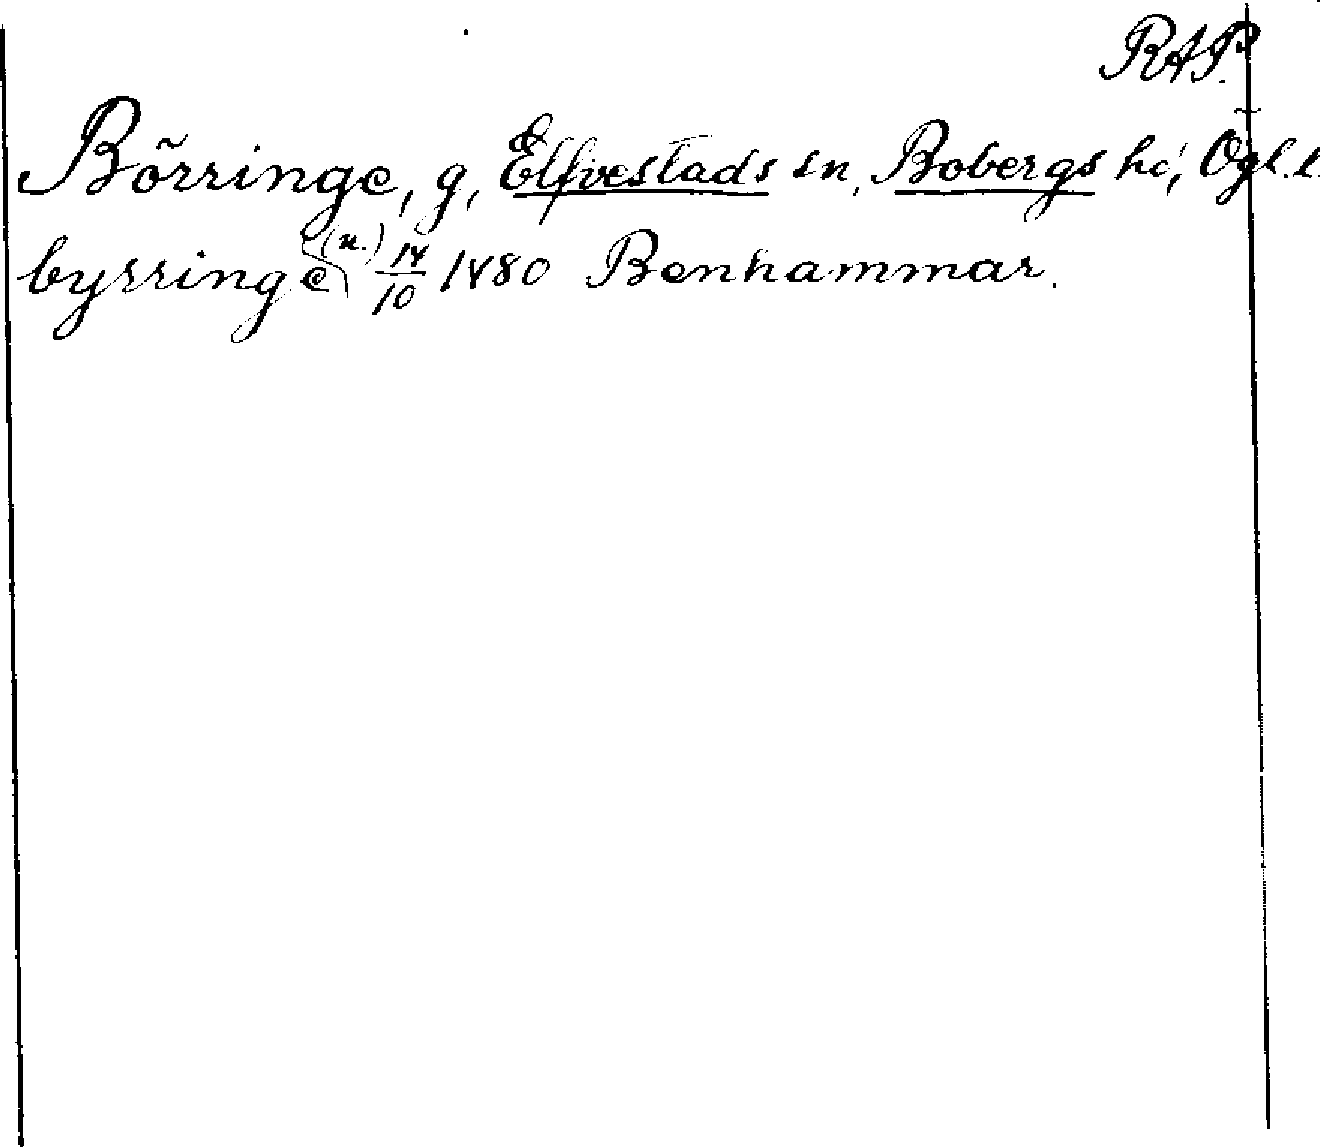 RAP.
Börringe, g, Elfvestads sn, Bobergs hd, Ögl.
byrringe (u.) 14/10 1480 Benhammar.